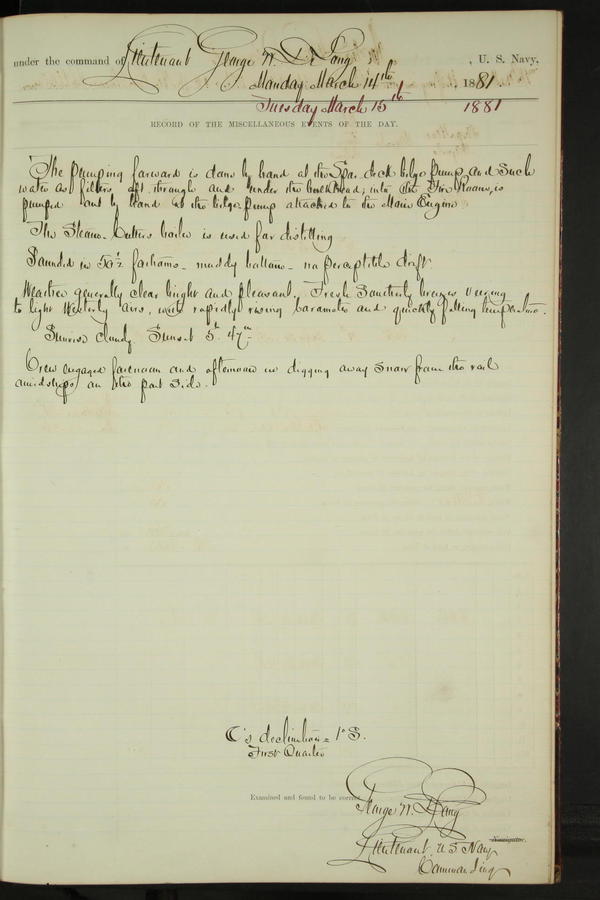 under the command of Lieutenant George W. De Long, U. S. Navy.
Monday March 14th, 1881.
Tuesday March 15th 1881
RECORD OF THE MISCELLANEOUS EVENTS OF THE DAY.
The pumping forward is done by hand at the Spar deck bilge pump, and such
water as filters aft, through and under the bulkhead, into the Fire Room, is
pumped out by hand at the bilge pump attached to the Main Engine
The Steam-Cutters boiler is used for distilling
Sounded in 50½ fathoms - muddy bottom - no perceptible drift
Weather generally clear bright and pleasant. Fresh Southerly breezes veering
to light Westerly airs, with rapidly rising barometer and quickly falling temperature.
Sunrise cloudy Sunset 5h 47m
Crew engaged forenoon and afternoon in digging away snow from the rail
amidships on the port side.
☾'s declination = 1° S.
First Quarter
Examined and found to be correct.
George W. De Long
Navigator.
Lieutenant, U S Navy
Commanding